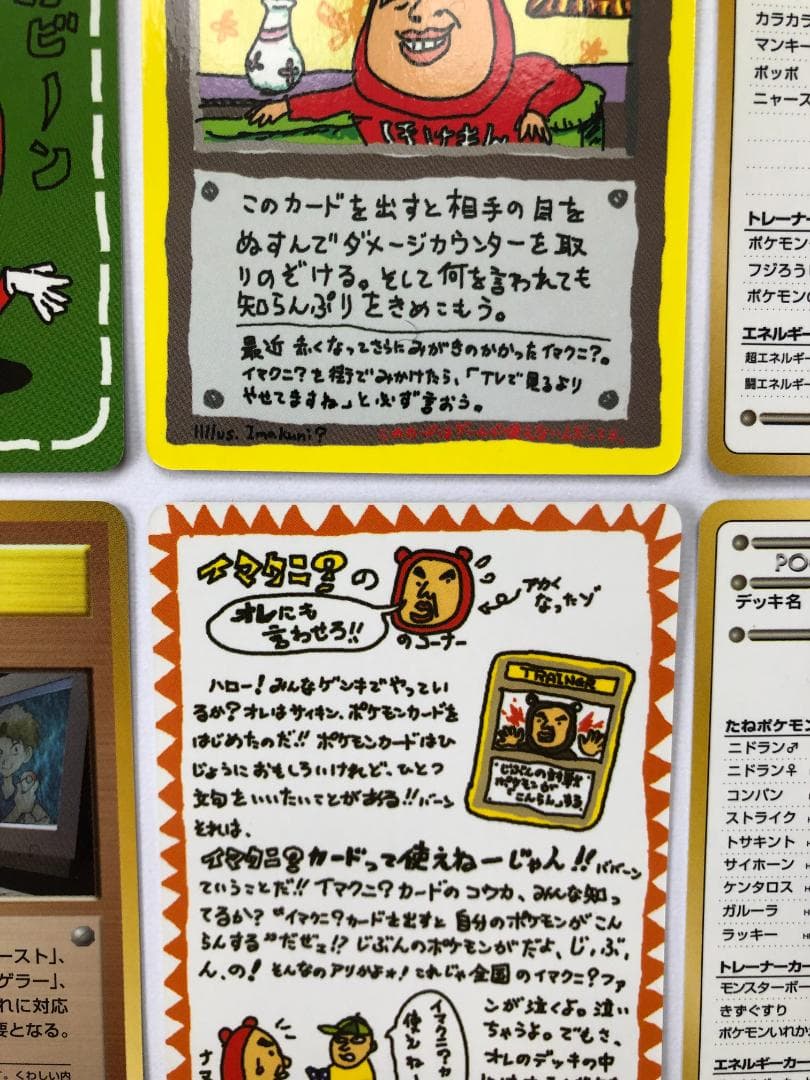 ビーン
ほけまん
このカードを出すと相手の目を
ぬすんでダメージカウンターを取
りのぞける。そして何を言われても
知らんぷりをきめこもう。
最近 赤くなってさらにみがきのかかったイマクニ?。
イマクニ?を街でみかけたら、「TVで見るより
やせてますね」と必ず言おう。
Illus. Imakuni?
カラカラ
マンキー
ポッポ
ニャース
トレーナー
ポケモン
フジろう
ポケモン
エネルギー
超エネルギー
闘エネルギー
イマクニ?の
オレにも
言わせろ!!
のコーナー
アカく
なったゾ
ハロー!みんなゲンキでやってい
るか?オレはサイキン、ポケモンカードを
はじめたのだ!!ポケモンカードはひ
じょうにおもしろいけれど、ひとつ
文句をいいたいことがある!!バーン
それは、
TRAINER
じぶんの対戦
ポケモンが
"こんらん"する
イマクニ?カードって使えねーじゃん!!ババーン
ていうことだ!!イマクニ?カードのコウカ、みんな知っ
てるか?"イマクニ?カードを出すと自分のポケモンがこん
らんする"だぜェ!?じぶんのポケモンがだよ、じ,ぶ,
ん,の!そんなのアリかよォ!これじゃ全国のイマクニ?ファ
ンが泣くよ。泣い
ちゃうよ。でもさ、
オレのデッキの中
イマクニ?カ
使えね
ースト」、
ゲラー」、
れに対応
要となる。
す。くわしい内
デッキ名
たねポケモン
ニドラン♂
ニドラン♀
コンパン
ストライク
トサキント
サイホーン
ケンタロス
ガルーラ
ラッキー
トレーナーカー
モンスターボー
きずぐすり
ポケモンいれか
エネルギーカー